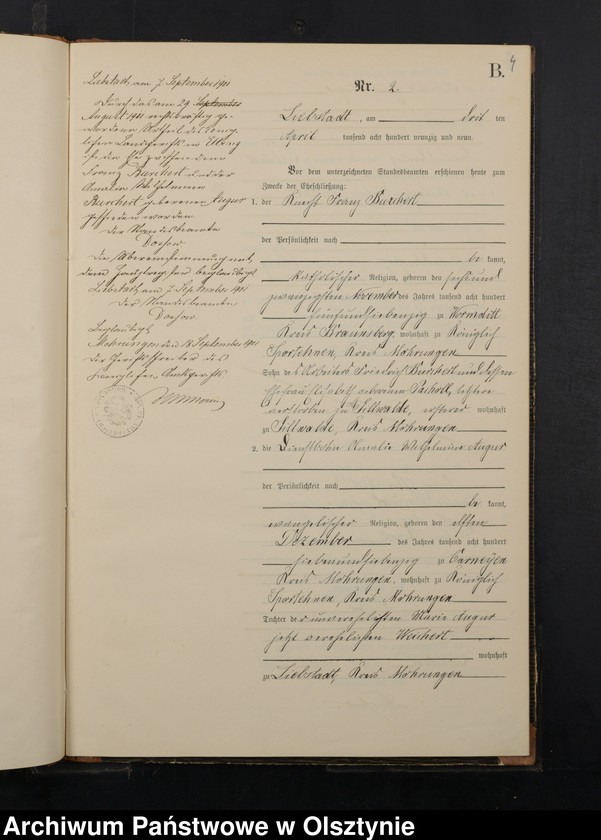 B. 4
Nr. 2.
Liebstadt, am 7. September 1911
Durch das am 29. September
August 1911 rechtskräftig ge-
wordene Urtheil des König-
lichen Landgerichts in Elbing
ist die Ehe zwischen dem
Franz Burchert und der
Amalie Wilhelmine
Burchert geborenen Augur
geschieden worden
Der Standesbeamte
Die Übereinstimmung mit
dem Hauptregister beglaubigt
Liebstadt, am 7. September 1911
Der Standesbeamte
Beglaubigt
Mohrungen den September 1911
Der Gerichtsschreiber des
Königlichen Amtsgerichts
Liebstadt, am drei ten
April tausend acht hundert neunzig und neun.
Vor dem unterzeichneten Standesbeamten erschienen heute zum
Zwecke der Eheschließung:
1. der Knecht Franz Burchert
der Persönlichkeit nach
be kannt,
katholischer Religion, geboren den sechsund
zwanzigsten November des Jahres tausend acht hundert
fünfundsiebenzig zu Wormditt
Kreis Braunsberg, wohnhaft zu Königlich
Sportehnen, Kreis Mohrungen
Sohn des Arbeiters Friedrich Burchert und dessen
Ehefrau Elisabeth geborenen letztere
verstorben zu Sillwalde, ersterer wohnhaft
zu Sillwalde, Kreis Mohrungen
2. die Dienstbotin Amalie Wilhelmine Augur
der Persönlichkeit nach
be kannt,
evangelischer Religion, geboren den elften
Dezember des Jahres tausend acht hundert
siebenundsiebenzig zu Carneyen
Kreis Mohrungen, wohnhaft zu Königlich
Sportehnen, Kreis Mohrungen
Tochter der unverehelichten Marie Augur
jetzt verehelichten Weichert
wohnhaft
zu Liebstadt, Kreis Mohrungen
Archiwum Państwowe w Olsztynie